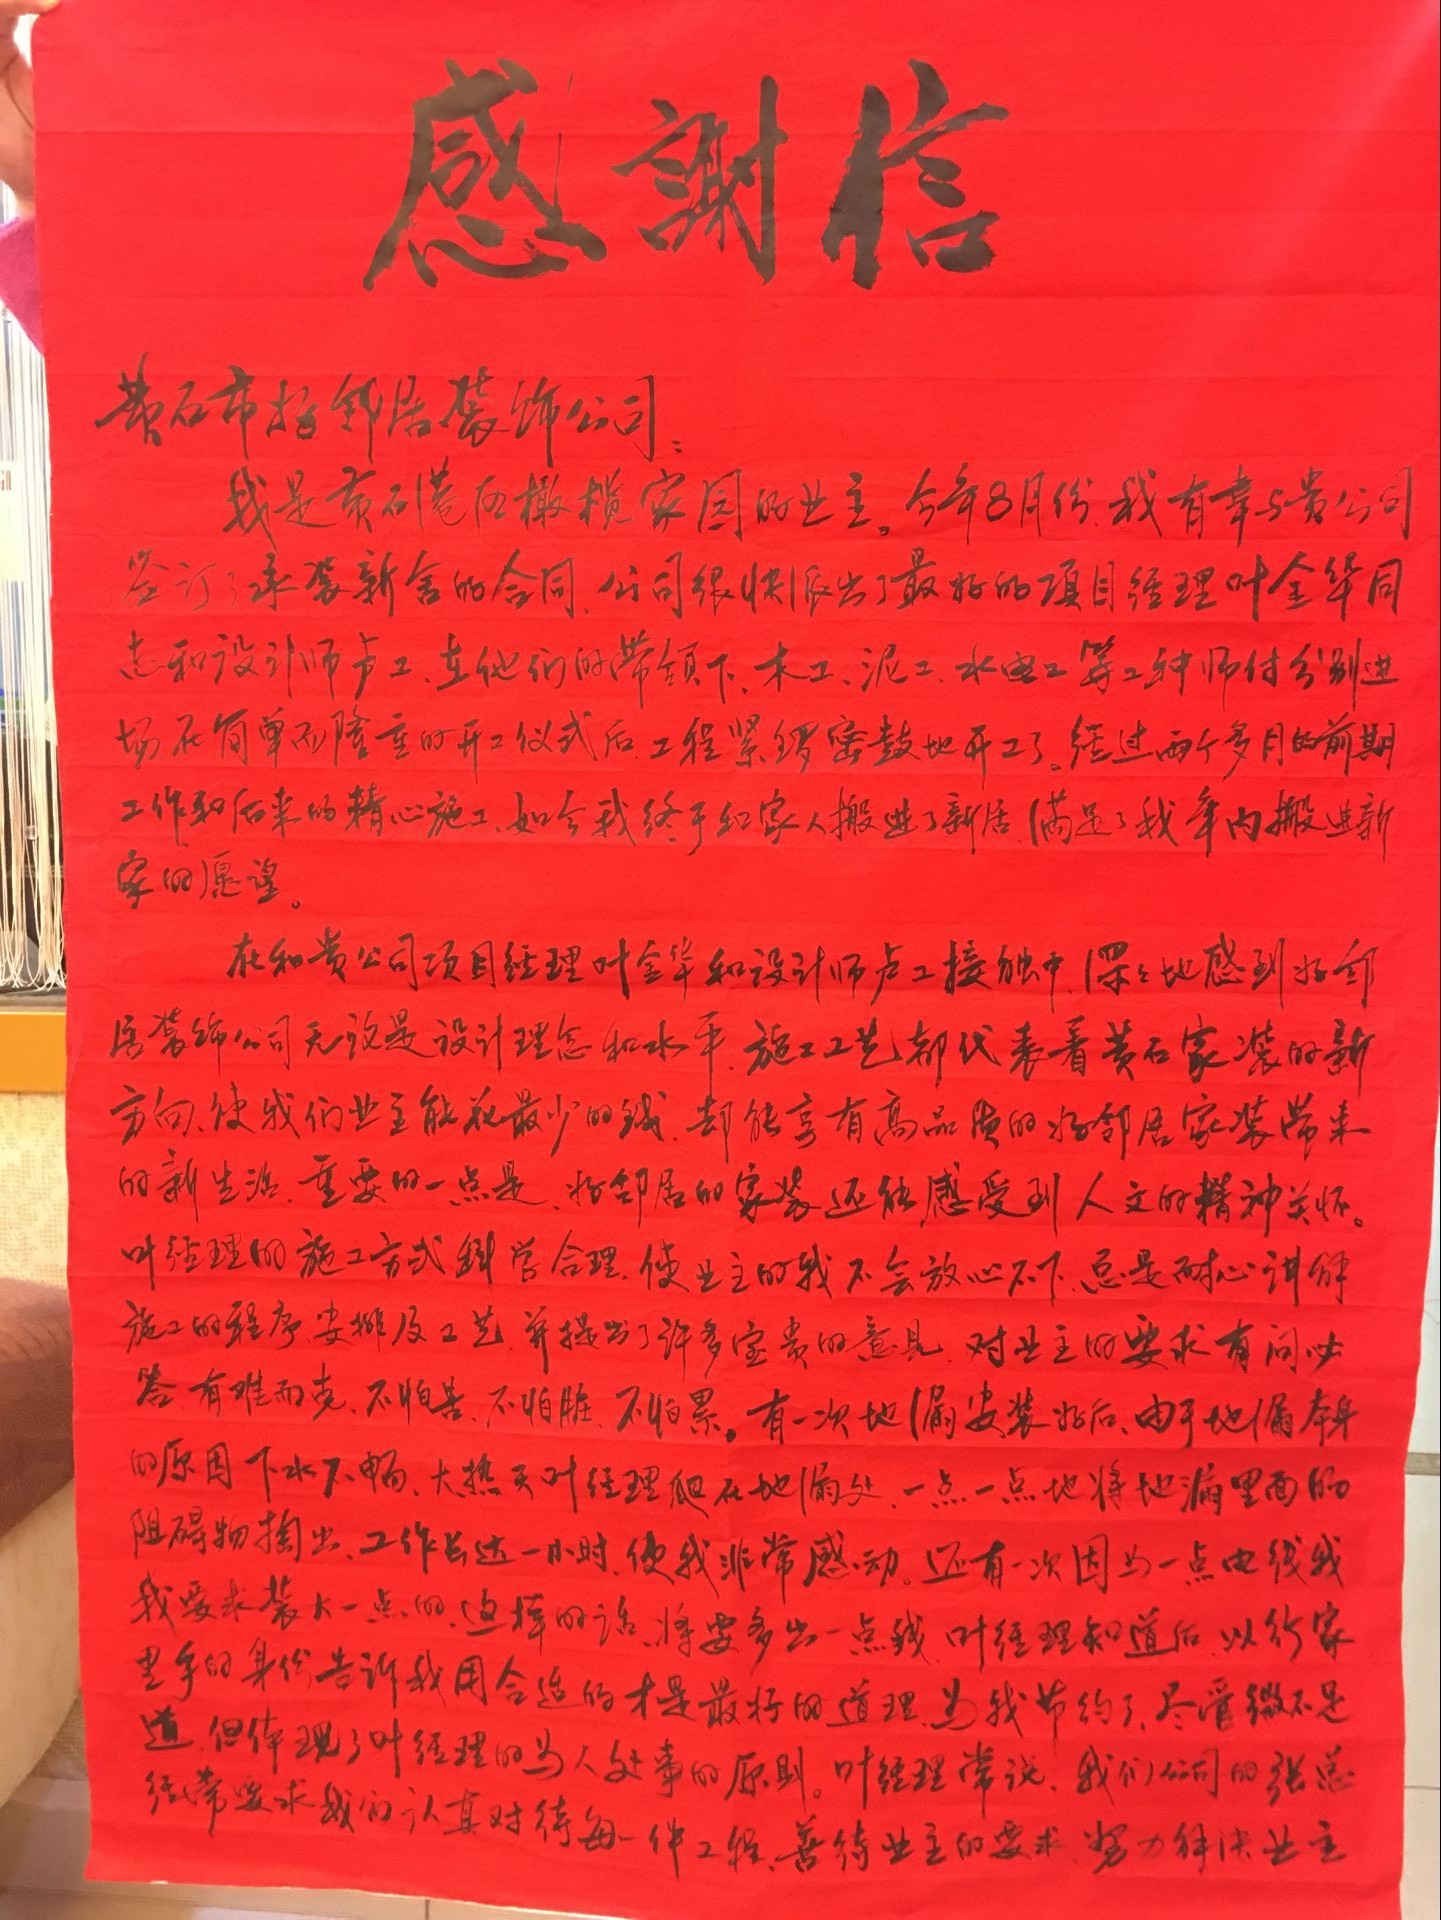 感謝信
黄石市好邻居装饰公司：
我是黄石港区橄榄家园的业主。今年8月份，我有幸与贵公司
签订了承装新舍的合同，公司很快派出了最好的项目经理叶金华同
志和设计师卢工，在他们的带领下，木工、泥工、水电工等工种师付分别进
场，在简单而隆重的开工仪式后，工程紧锣密鼓地开工了。经过两个多月的前期
工作和后来的精心施工，如今我终于和家人搬进了新居，满足了我年内搬进新
家的愿望。
在和贵公司项目经理叶金华和设计师卢工接触中，深深地感到好邻
居装饰公司无论是设计理念和水平，施工工艺都代表着黄石家装的新
方向，使我们业主能花最少的钱，却能享有高品质的好邻居家装带来
的新生活，重要的一点是，好邻居的家装还能感受到人文的精神关怀。
叶经理的施工方式科学合理，使业主的我不会放心不下，总是耐心讲解
施工的程序安排及工艺，并提出了许多宝贵的意见，对业主的要求有问必
答，有难而克，不怕苦、不怕脏、不怕累。有一次地漏安装好后，由于地漏本身
的原因下水不畅，大热天叶经理爬在地漏处，一点一点地将地漏里面的
阻碍物掏出，工作长达一小时，使我非常感动。还有一次因为一点电线我
我要求装大一点的，这样的话，将要多出一点钱，叶经理知道后，以行家
里手的身份告诉我用合适的才是最好的道理，为我节约了，尽管微不足
道，但体现了叶经理的为人处事的原则。叶经理常说，我们公司的张总
经常要求我们认真对待每一件工程，善待业主的要求，努力解决业主